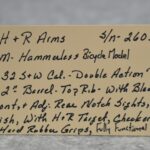 H + R Arms S/n-260
M- Hammerless Bicycle Model
32 S+W Cal.- Double Action
2" Barrel- Top Rib- With Bla
ont, + Adj. Rear Notch Sights,
ish, With H+R Target, Checker
Hard Rubber Grips, Fully Functional